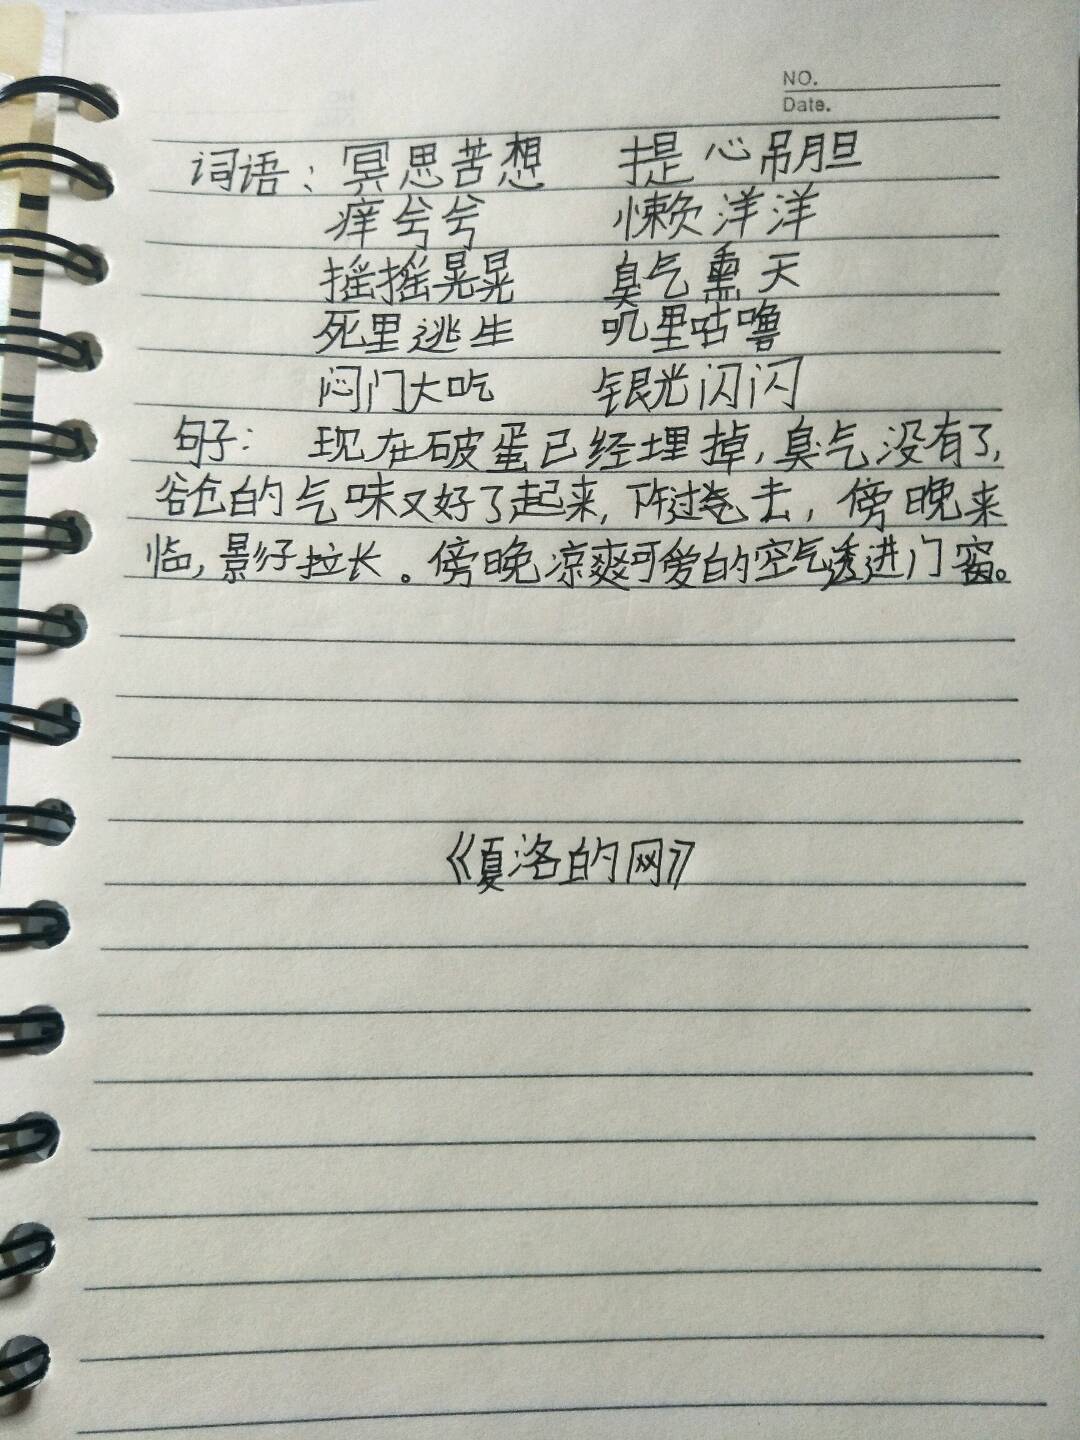 NO.
Date.
词语：冥思苦想 提心吊胆
痒兮兮 懒洋洋
摇摇晃晃 臭气熏天
死里逃生 叽里咕噜
闷门大吃 银光闪闪
句子：现在破蛋已经埋掉，臭气没有了，
谷仓的气味又好了起来，下午过去，傍晚来
临，影子拉长。傍晚凉爽可爱的空气透进门窗。
《夏洛的网》